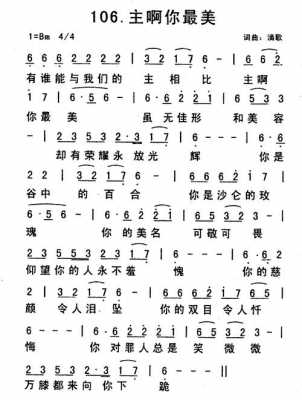 106.主啊你最美
1=Bm 4/4 词曲:涌歌
6 6 6 2 2 2 2 | 3 2 1 7 | 6 - · 6 |
有谁能与我们的 主相比 主啊
1 7 | 6 · 5 6 - | 6 · 6 2 2 1 | 6 5 3 |
你最美 虽无佳形和美容
2 3 5 5 3 2 · 3 | 3 2 1 7 | 6 - - - | 6 · 6 |
却有荣耀永放光辉 你是
2 2 | 3 2 1 7 | 6 · 5 6 - | 6 · 6 2 2 1 |
谷中的百合 你是沙仑的玫
6 · 5 6 - | 6 · 6 2 2 | 1 2 1 6 5 3 |
瑰 你的美名 可敬可畏
2 3 5 5 3 2 3 | 3 2 1 7 | 6 - - - | 6 · 6 2 |
仰望你的人永不羞愧 你的慈
2 | 3 2 1 7 | 6 - - - | 6 · 6 2 1 2 1 7 6 5 |
颜 令人泪坠 你的双目令人忏
6 - - - | 6 · 6 2 2 1 2 1 | 6 5 3 |
悔 你对罪人总是笑微微
2 3 5 5 3 2 3 | 1 7 | 6 - - - ||
万膝都来向你下跪